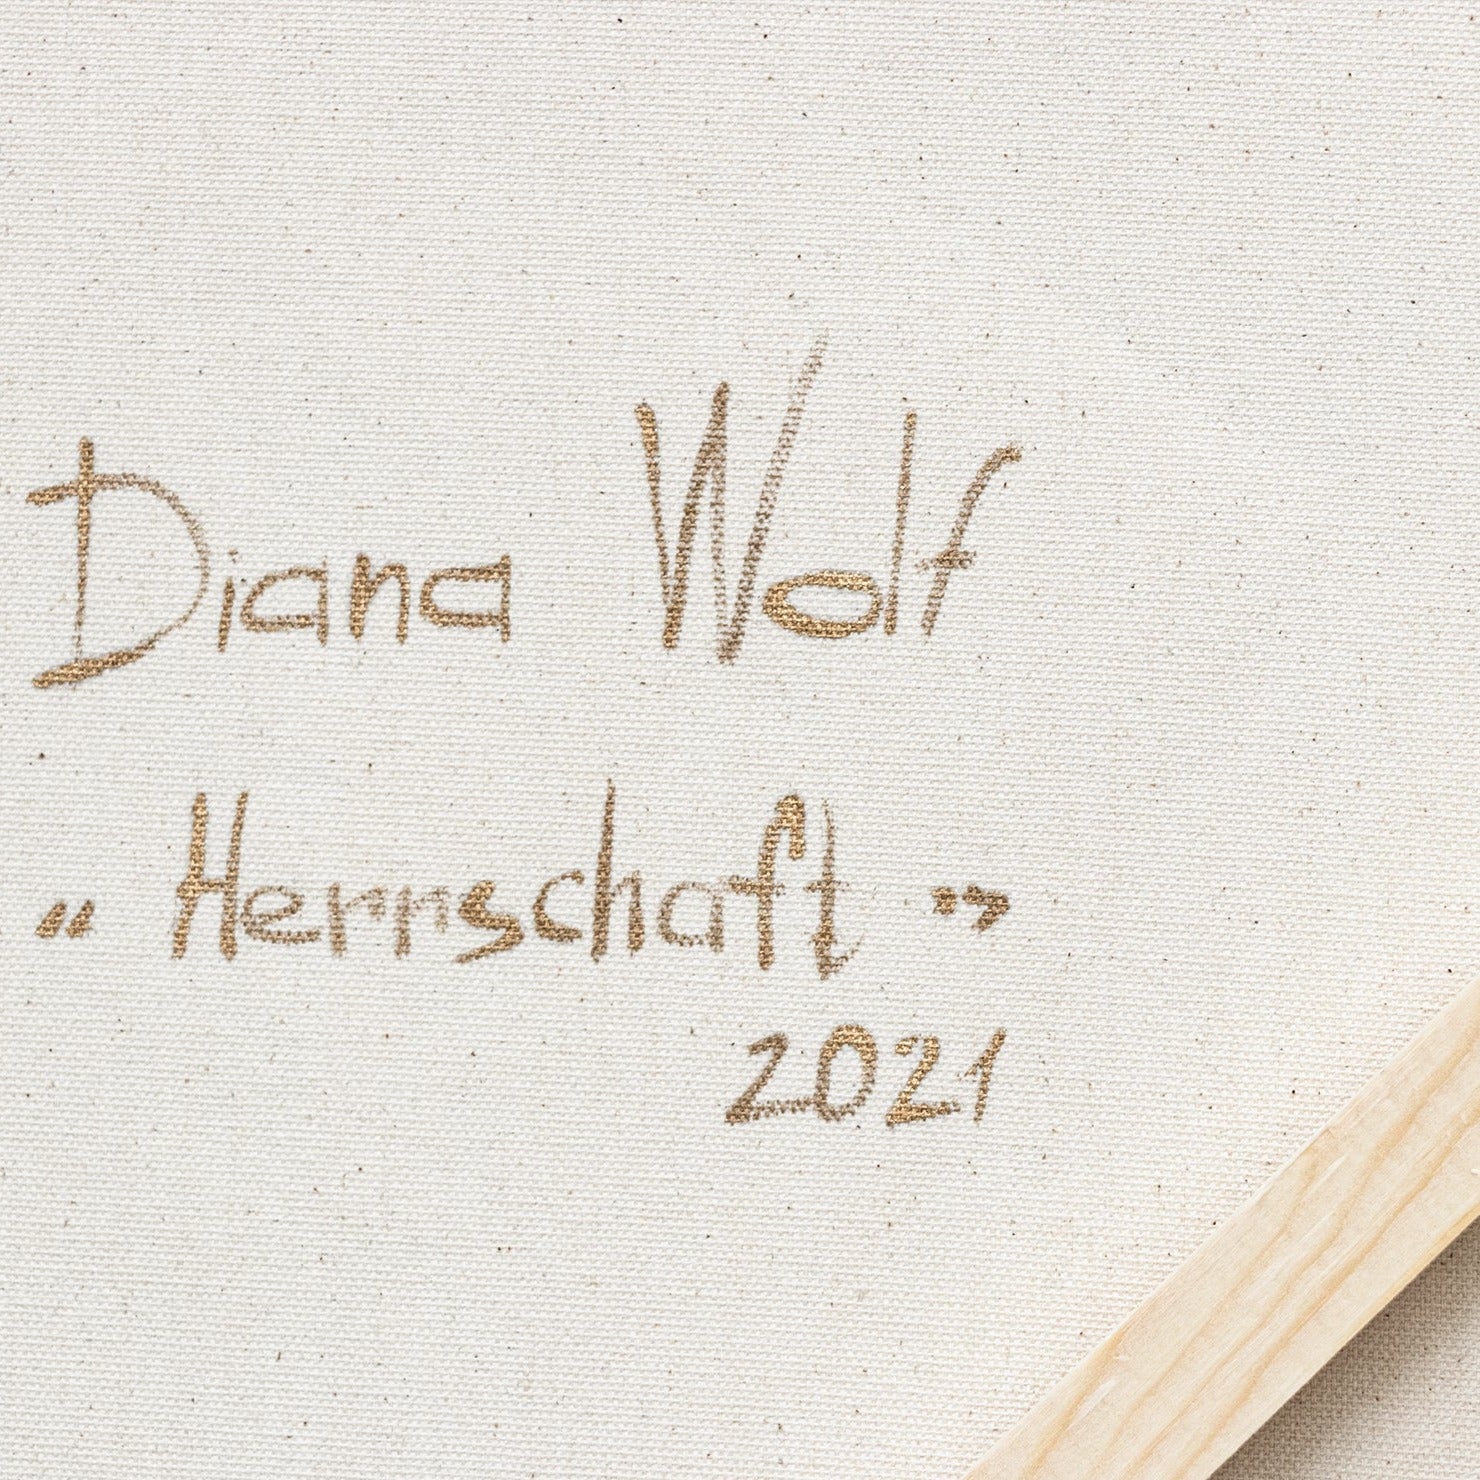 Diana Wolf
“Herrschaft”
2021